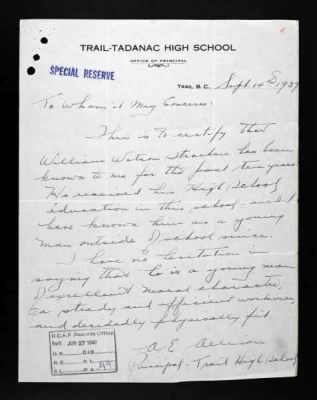 TRAIL-TADANAC HIGH SCHOOL
OFFICE OF PRINCIPAL
SPECIAL RESERVE
TRAIL, B.C., Sept. 14th 1939
To Whom it May Concern:
This is to certify that
William Watson Strachan has been
known to me for the past ten years.
He received his High School
education in this school and I
have known him as a young
man outside of school since.
I have no hesitation in
saying that he is a young man
of excellent moral character,
a steady and efficient workman,
and decidedly physically fit.
A.E. Allison
Principal - Trail High School
R.C.A.F. Records Office
JUN 27 1940